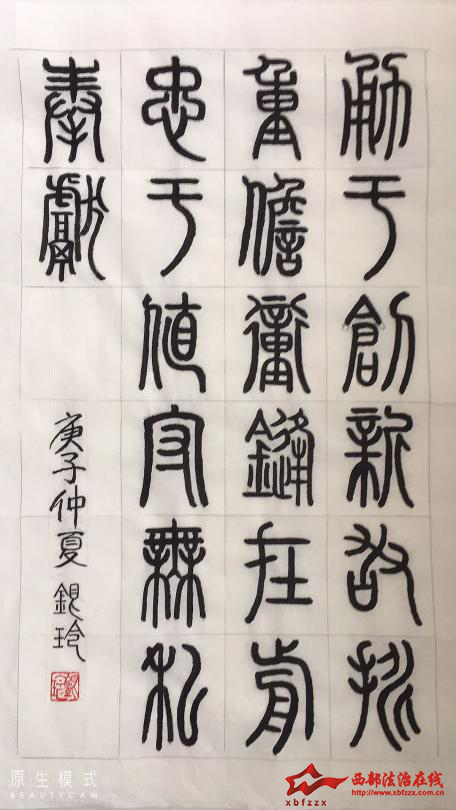 勇于創新敢挑
重擔衝鋒在前
忠于值守無私
奉獻
庚子仲夏 銀玲
原生模式
BEAUTYCAM
xbfzzx
西部法治在线
http://www.xbfzzx.com.cn